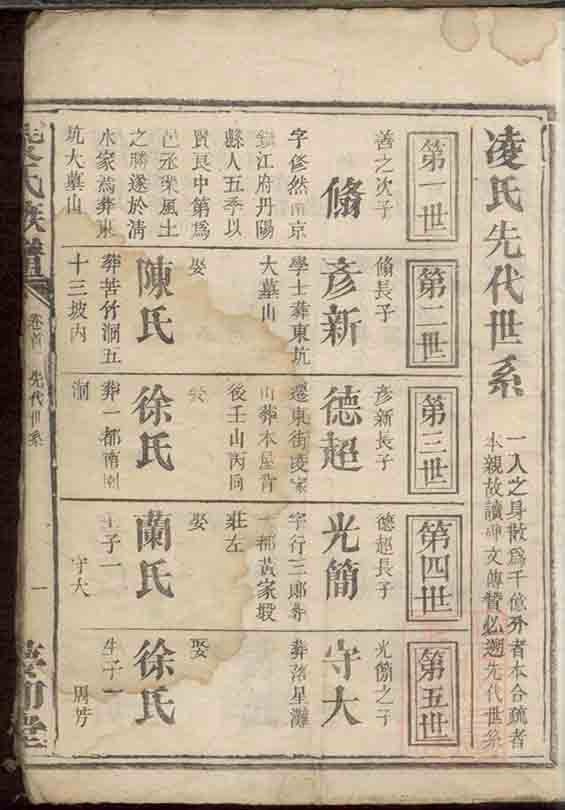 凌氏先代世系
一人之身散爲千億外者本合疏者
本親故讀文傳贊必遡先代世系
第一世
善之次子
脩
字脩然南京
鎮江府丹陽
縣人五季以
賢良中第爲
邑丞樂風土
之勝遂於清
水家焉葬東
坑大墓山
第二世
脩長子
彥新
學士葬東坑
大墓山
娶
陳氏
葬苦竹洞五
十三坡內
第三世
彥新長子
德超
遷東街凌家
山葬本屋背
後壬山丙向
娶
徐氏
葬一都南園
洞
第四世
德超長子
光簡
字行三郎葬
一都黃家塅
莊左
娶
蘭氏
生子一
守大
第五世
光簡之子
守大
葬落星灘
娶
徐氏
生子一
周
氏族譜
卷首
先代世系
一